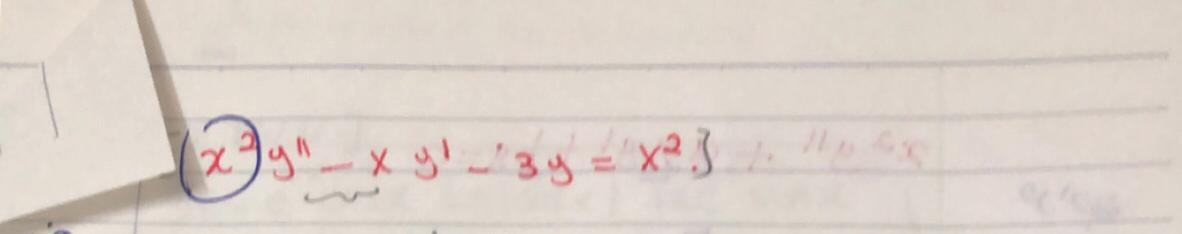 x²y" - xy' - 3y = x².}